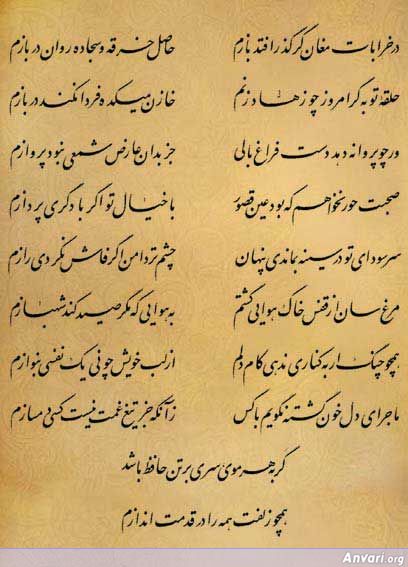 در خرابات مغان گر گذر افتد بازم حاصل خرقه و سجاده روان در بازم
حلقهٔ توبه گر امروز چو زهاد زنم خازن میکده فردا نکند در بازم
ور چو پروانه دهد دست فراغ بالی جز بدان عارض شمعی نبود پروازم
صحبت حور نخواهم که بود عین قصور با خیال تو اگر با دگری پردازم
سر سودای تو در سینه بماندی پنهان چشم تردامن اگر فاش نکردی رازم
مرغ سان از قفس خاک هوایی گشتم به هوایی که مگر صید کند شهبازم
همچو چنگ ار به کناری ندهی کام دلم از لب خویش چو نی یک نفسی بنوازم
ماجرای دل خون گشته نگویم با کس زآنکه جز تیغ غمت نیست کسی دمسازم
گر به هر موی سری بر تن حافظ باشد
همچو زلفت همه را در قدمت اندازم
Anvari.org